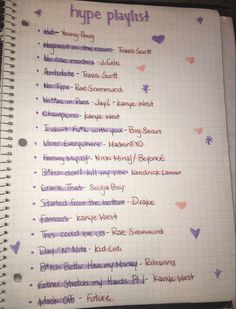 hype playlist
• Hot - Young Thug
• Highest in the room - Travis Scott
• No role models - J. Cole
• Antidote - Travis Scott
• No Type - Rae Sremmurd
• Niggas in Paris - Jay Z - Kanye West
• Champions - Kanye West
• I don't fu*k with you - Big Sean
• Uber Everywhere - MadeinTYO
• Feeling Myself - Nicki Minaj/Beyoncé
• B*tch don't kill my vibe - Kendrick Lamar
• Crank That - Soulja Boy
• Started from the bottom - Drake
• Famous - Kanye West
• This could be us - Rae Sremmurd
• Day 'N' Nite - Kid Cudi
• B*tch Better Have my Money - Rihanna
• Father Stretch my Hands Pt. 1 - Kanye West
• Mask Off - Future